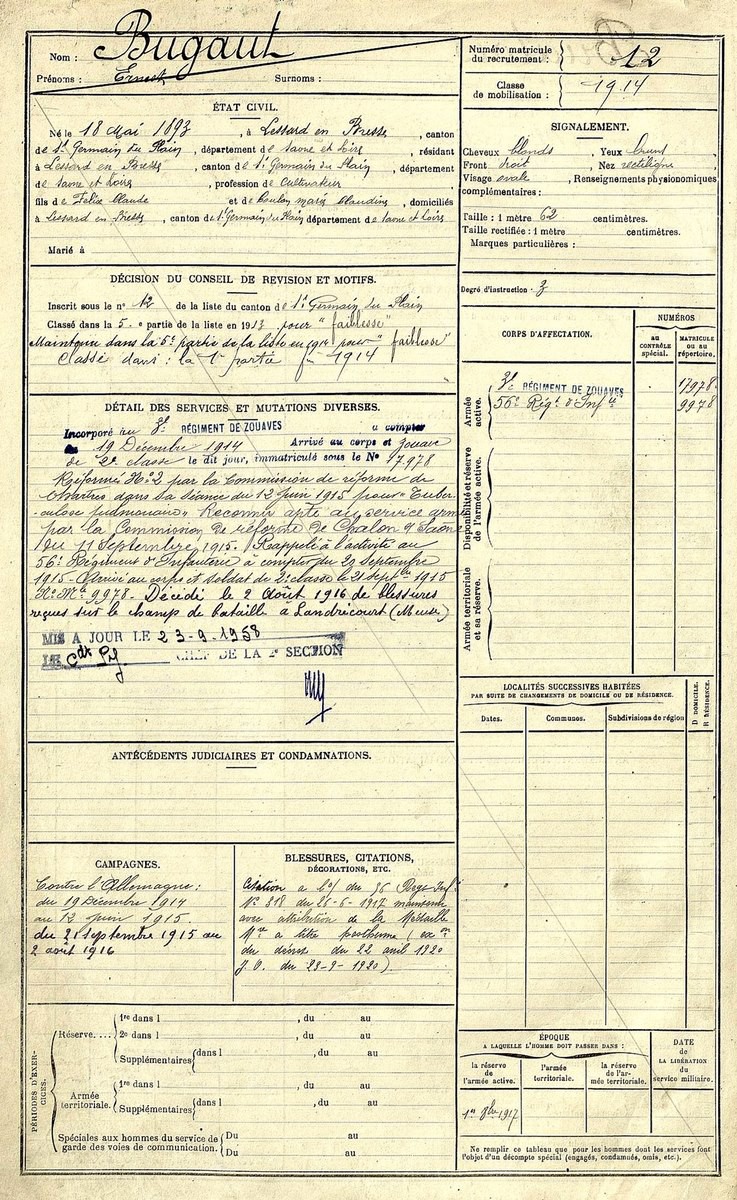 Nom : Bugaut
Prénoms : Ernest Surnoms :
Numéro matricule du recrutement : 12
Classe de mobilisation : 1914
ÉTAT CIVIL.
Né le 18 Mai 1893, à Lessard en Bresse, canton
de St Germain du Plain, département de Saône et Loire, résidant
à Lessard en Bresse, canton de St Germain du Plain, département
de Saône et Loire, profession de Cultivateur
fils de Felix Claude et de Coulon marie claudine, domiciliés
à Lessard en Bresse, canton de St Germain du Plain département de Saône et Loire
Marié à
SIGNALEMENT.
Cheveux blonds Yeux bruns
Front droit, Nez rectiligne
Visage ovale, Renseignements physionomiques
complémentaires :
Taille : 1 mètre 62 centimètres.
Taille rectifiée : 1 mètre centimètres.
Marques particulières :
Degré d'instruction - 3
DÉCISION DU CONSEIL DE REVISION ET MOTIFS.
Inscrit sous le n° 12 de la liste du canton de St Germain du Plain
Classé dans la 5e partie de la liste en 1913 pour "faiblesse"
Maintenu dans la 5e partie de la liste en 1914 pour "faiblesse"
Classé dans la 1e partie 1914
DÉTAIL DES SERVICES ET MUTATIONS DIVERSES.
Incorporé au 3e RÉGIMENT DE ZOUAVES à compter
du 19 Décembre 1914 Arrivé au corps et zouave
de 2e classe le dit jour, immatriculé sous le No 17.978
Réformé No 2 par la Commission de réforme de
dans sa séance du 12 juin 1915 pour "Tuber
culose pulmonaire" Reconnu apte au service armé
par la Commission de réforme de Chalon s/ Saône
du 11 Septembre 1915. Rappelé à l'activité au
56e Régiment d'Infanterie à compter du 29 Septembre
1915 - Arrivé au corps et soldat de 2e classe le 21 septbre 1915
No Mle 9978. Décédé le 2 Août 1916 de blessures
reçues sur le champ de bataille à Landrecourt (Meuse)
MIS A JOUR LE 23-9-1958
LE Cdt CHEF DE LA 2e SECTION
CORPS D'AFFECTATION.
NUMÉROS
au CONTRÔLE spécial.
MATRICULE ou au répertoire.
Armée active.
3e RÉGIMENT DE ZOUAVES 17978
56e Régt d'Infie 9978
Disponibilité et réserve de l'armée active.
Armée territoriale et sa réserve.
LOCALITÉS SUCCESSIVES HABITÉES
PAR SUITE DE CHANGEMENTS DE DOMICILE OU DE RÉSIDENCE.
D DOMICILE.
R RÉSIDENCE.
Dates. Communes. Subdivisions de région
ANTÉCÉDENTS JUDICIAIRES ET CONDAMNATIONS.
CAMPAGNES.
Contre l'Allemagne :
du 19 Décembre 1914
au 12 juin 1915.
du 21 septembre 1915 au
2 août 1916
BLESSURES, CITATIONS,
DÉCORATIONS, ETC.
Citation à l'o/ du 56 Rég. Inf
No 318 du 26-6-1917 maintenue
avec attribution de la Médaille
Mre à titre posthume (
du décret du 22 avril 1920
J.O. du 23-9-1920).
PÉRIODES D'EXERCICES.
Réserve....
1re dans l , du au
2e dans l , du au
Supplémentaires dans l , du au
Armée territoriale.
1re dans l , du au
Supplémentaires dans l , du au
Spéciales aux hommes du service de garde des voies de communication.
Du au
Du au
ÉPOQUE
A LAQUELLE L'HOMME DOIT PASSER DANS :
la réserve de l'armée active.
l'armée territoriale.
la réserve de l'armée territoriale.
DATE
de
LA LIBÉRATION
du
service militaire.
1er 8bre 1917
Ne remplir ce tableau que pour les hommes dont les services font
l'objet d'un décompte spécial (engagés, condamnés, omis, etc.).